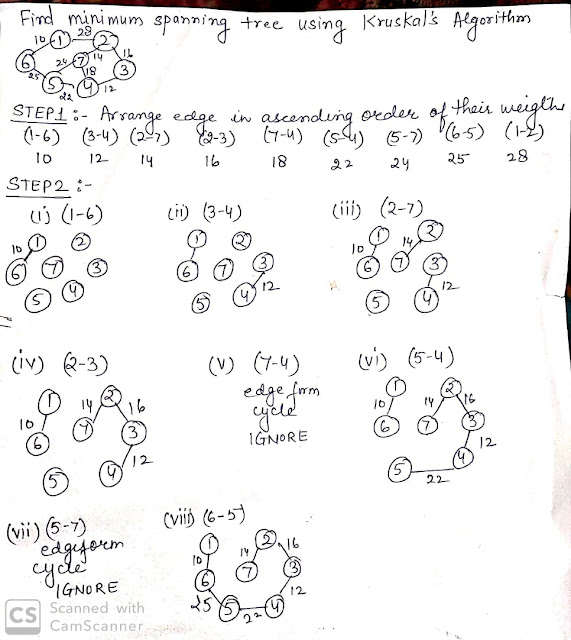 Find minimum spanning tree using Kruskal's Algorithm
28
10 1 2
24 7 14 16
6 18 3
25 5 4 12
22
STEP1 :- Arrange edge in ascending order of their weights
(1-6) (3-4) (2-7) (2-3) (7-4) (5-4) (5-7) (6-5) (1-2)
10 12 14 16 18 22 24 25 28
STEP2 :-
(i) (1-6) (ii) (3-4) (iii) (2-7)
10 1 2 1 2 10 1 14 2
6 7 3 6 7 3 6 7 3
5 4 5 4 12 5 4 12
(iv) (2-3) (v) (7-4) (vi) (5-4)
edge form
cycle
IGNORE
1 14 2 16
10 7 3
6 12
5 4
1 2
10 14 16
6 7 3
12
5 4
22
(vii) (5-7) (viii) (6-5)
edge form
cycle
IGNORE
1 2 16
10 14
6 7 3
25 12
5 22 4
CS Scanned with
CamScanner